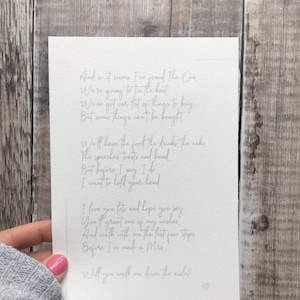 And so it seems I've found The One
We're going to tie the knot
We've got our list of things to buy
But some things can't be bought

We'll have the food the drinks the cake
The speeches toasts and band
But before I say I do
I want to hold your hand

I love you lots and hope you say
You'll grant one of my wishes
And walk with me the last few steps
Before I'm made a Mrs.

Will you walk me down the aisle?